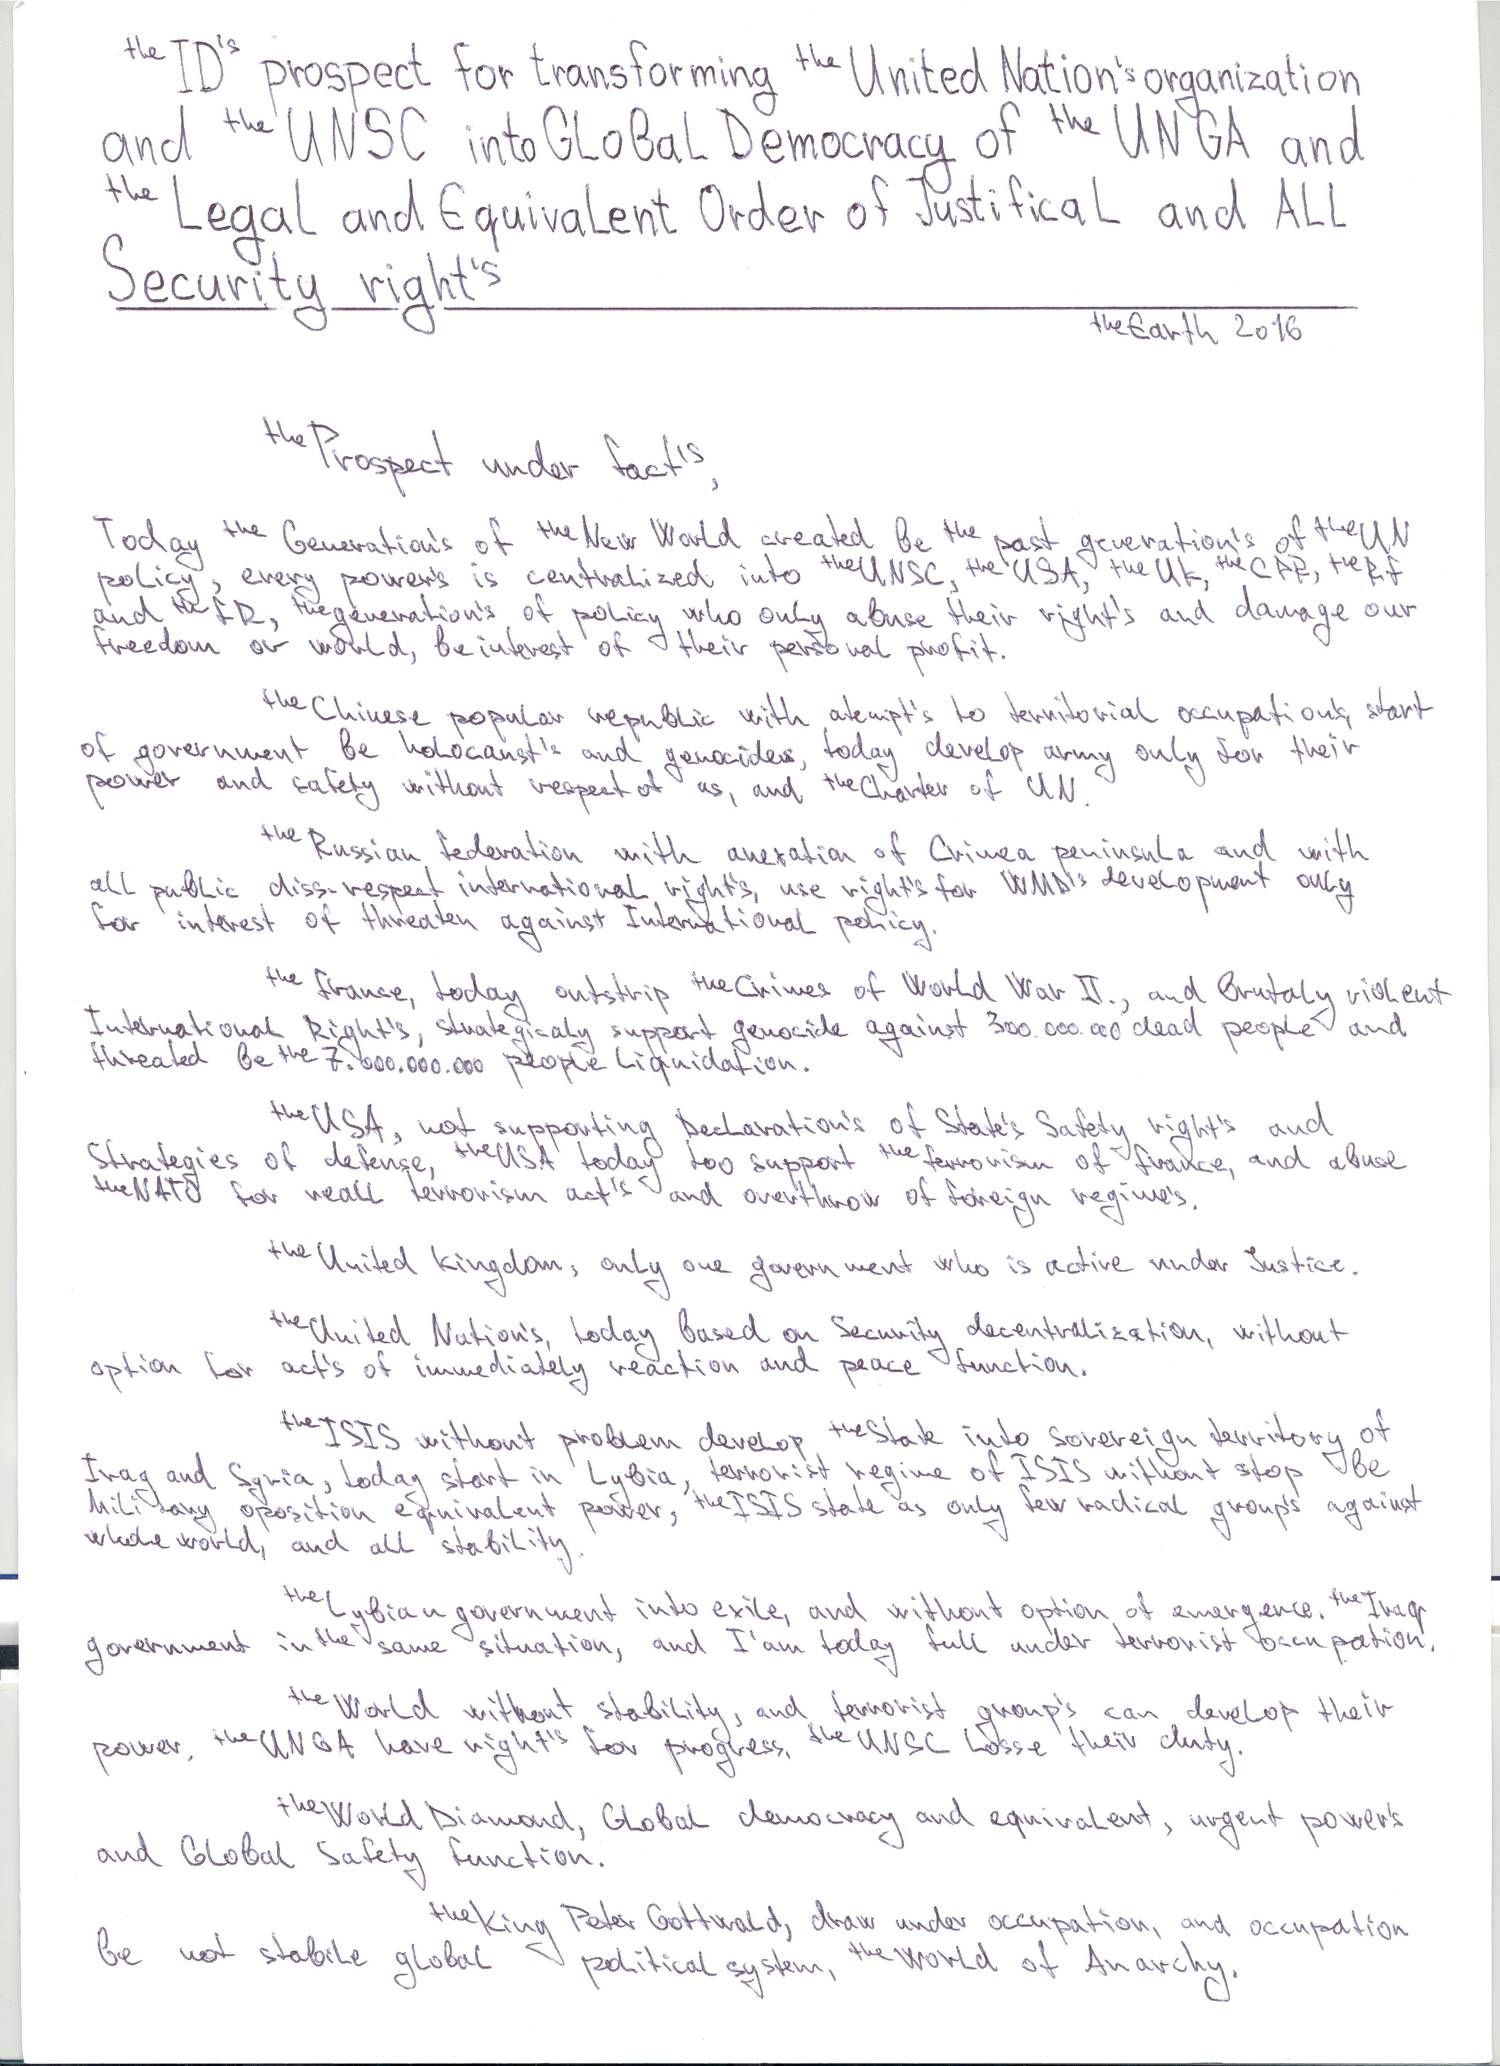 the ID's prospect for transforming the United Nation's organization
and the UNSC into GLoBaL Democracy of the UNGA and
the Legal and EquivaLent Order of JustificaL and ALL
Security right's
the Earth 2016
the Prospect under fact's,
Today the Generation's of the New World created be the past generation's of the UN
policy, every power's is centralized into the UNSC, the USA, the UK, the CPR, the RF
and the FR, the generation's of policy who only abuse their right's and damage our
freedom or world, be interest of their personal profit.
the Chinese popular republic with atempt's to territorial occupation's, start
of government be holocaust's and genocides, today develop army only for their
power and safety without respect of us, and the Charter of UN.
the Russian federation with anexation of Crimea peninsula and with
all public diss-respect international right's, use right's for WMD's development only
for interest of threaten against International policy.
the france, today outstrip the Crimes of World War II., and Brutaly violent
International Right's, strategicaly support genocide against 300.000.000 dead people and
threated be the 7.000.000.000 people Liquidation.
the USA, not supporting Declaration's of State's Safety right's and
Strategies of defense, the USA today too support the terrorism of france, and abuse
the NATO for reall terrorism act's and overthrow of foreign regime's.
the United Kingdom, only one government who is active under Justice.
the United Nation's, today based on Security decentralization, without
option for act's of immediately reaction and peace function.
the ISIS without problem develop the State into sovereign territory of
Iraq and Syria, today start in Lybia, terrorist regime of ISIS without stop be
Military oposition equivalent power, the ISIS state as only few radical group's against
whole world, and all stability.
the Lybian government into exile, and without option of emergence. the Iraq
government in the same situation, and I'am today full under terrorist occupation.
the World without stability, and terrorist group's can develop their
power, the UNGA have right's for progress, the UNSC Losse their duty.
the World Diamond, Global democracy and equivalent, urgent power's
and Global Safety function.
the King Peter Gottwald, draw under occupation, and occupation
be not stabile global political system, the World of Anarchy.